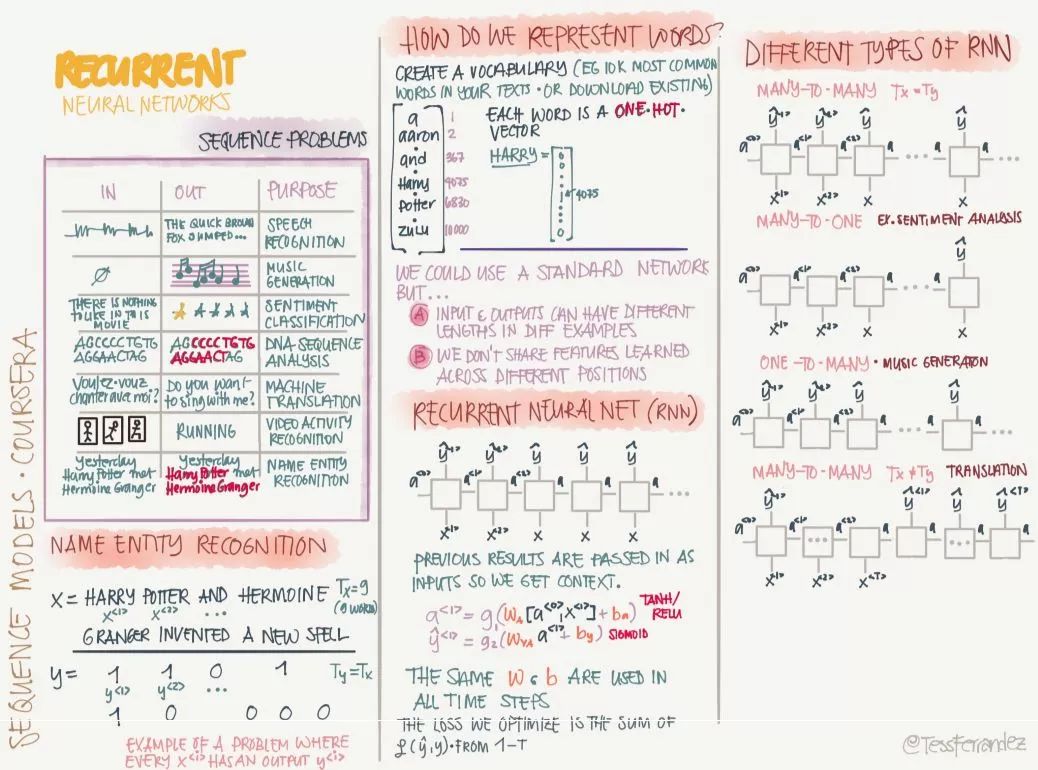 RECURRENT
NEURAL NETWORKS
SEQUENCE PROBLEMS
IN OUT PURPOSE
THE QUICK BROWN
FOX JUMPED...
SPEECH
RECOGNITION
MUSIC
GENERATION
THERE IS NOTHING
TO LIKE IN THIS
MOVIE
SENTIMENT
CLASSIFICATION
AGCCCCTGTG
AGGAACTAG
AGCCCCTGTG
AGGAACTAG
DNA-SEQUENCE
ANALYSIS
Voulez-vouz
chanter avec moi?
Do you want
to sing with me?
MACHINE
TRANSLATION
RUNNING
VIDEO ACTIVITY
RECOGNITION
Yesterday
Harry Potter met
Hermoine Granger
Yesterday
Harry Potter met
Hermoine Granger
NAME ENTITY
RECOGNITION
SEQUENCE MODELS · COURSERA
NAME ENTITY RECOGNITION
X = HARRY POTTER AND HERMOINE Tx=9
x<1> x<2> ... (9 WORDS)
GRANGER INVENTED A NEW SPELL
y= 1 1 0 1 Ty=Tx
y<1> y<2> ...
1 0 0 0 0
EXAMPLE OF A PROBLEM WHERE
EVERY x<i> HAS AN OUTPUT y<i>
HOW DO WE REPRESENT WORDS?
CREATE A VOCABULARY (EG 10K MOST COMMON
WORDS IN YOUR TEXTS · OR DOWNLOAD EXISTING)
a 1
aaron 2
and 367
Harry 4075
Potter 6830
zulu 10000
EACH WORD IS A ONE·HOT·
VECTOR
HARRY = 0 0 1 0 4075
WE COULD USE A STANDARD NETWORK
BUT...
A INPUT & OUTPUTS CAN HAVE DIFFERENT
LENGTHS IN DIFF EXAMPLES
B WE DON'T SHARE FEATURES LEARNED
ACROSS DIFFERENT POSITIONS
RECURRENT NEURAL NET (RNN)
ŷ<1> ŷ ŷ ŷ ŷ
a<0> a<1> a<2> a a ...
x<1> x<2> x x x
PREVIOUS RESULTS ARE PASSED IN AS
INPUTS SO WE GET CONTEXT.
a<1> = g₁(WA [a<0>, x<1>] + ba) TANH/
RELU
ŷ<1> = g₂(WYA a<1> + by) SIGMOID
THE SAME W & b ARE USED IN
ALL TIME STEPS
THE LOSS WE OPTIMIZE IS THE SUM OF
L(ŷ,y)·FROM 1-T
DIFFERENT TYPES OF RNN
MANY-TO-MANY Tx=Ty
ŷ<1> ŷ<2> ŷ ŷ
a<0> a<1> a<2> a ... a ...
x<1> x<2> x x
MANY-TO-ONE EX. SENTIMENT ANALYSIS
ŷ
a<0> a<1> a<2> a ... a
x<1> x<2> x x
ONE-TO-MANY · MUSIC GENERATION
ŷ<1> ŷ<2> ŷ ŷ
a<0> a<1> a<2> a ... a ...
MANY-TO-MANY Tx≠Ty TRANSLATION
ŷ<1> ŷ ŷ<T>
a<0> a<1> ... a<2> a a ... a
x<1> x<2> x<T>
@TessFerrandez